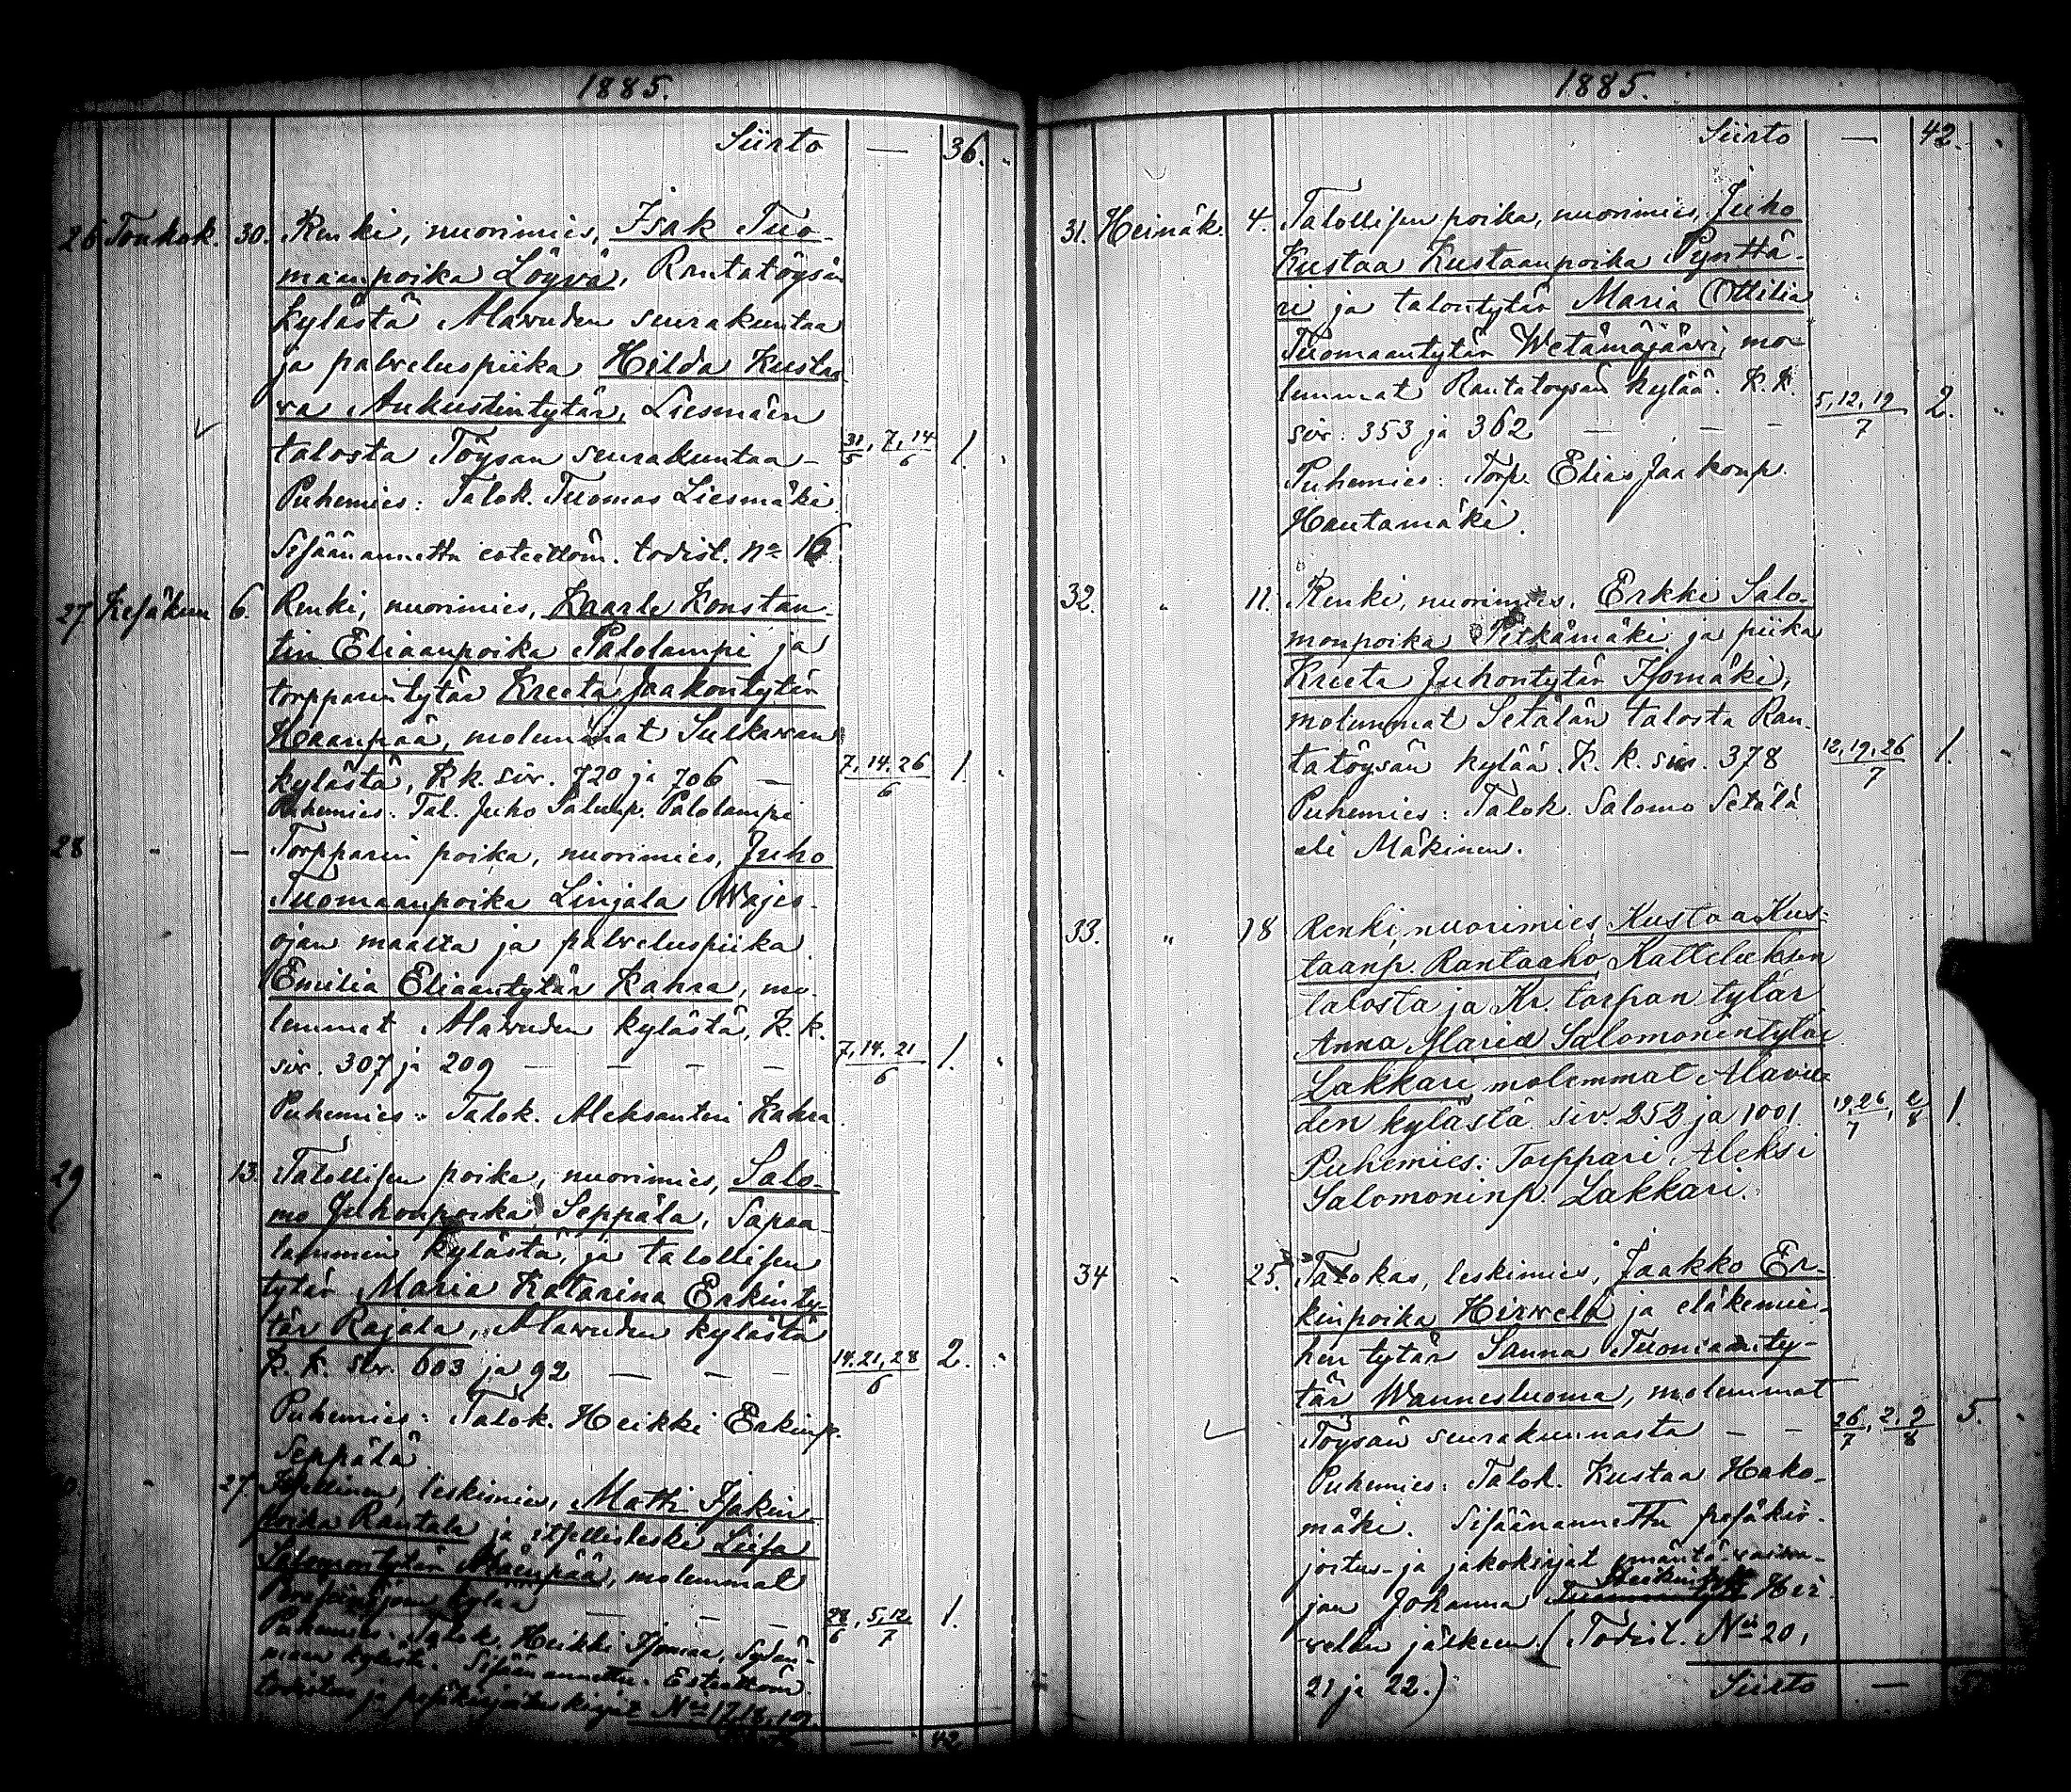 1885.
Siirto — 36.
26 Toukok. 30. Renki, nuorimies, Isak Tuo-
maanpoika Löyvä, Rantatöysän
kylästä Alawuden seurakuntaa
ja palveluspiika Hilda Kusta-
va Aukustintytär, Liesmäen
talosta Töysän seurakuntaa – 31/5, 7,14/6 1.
Puhemies: Talok. Tuomas Liesmäki
Sisäänannettu esteettöm. todist. No 16
27 Kesäkuu 6. Renki, nuorimies, Kaarle Konstan-
tin Eliaanpoika Palolampi ja
torpparintytär Kreeta Jaakontytär
Haanpää, molemmat Sulkavan
kylästä, K.k. siv. 720 ja 706 — 7,14,26/6 1.
Puhemies. Tal. Juho Salunp. Palolampi
28 - – Torpparin poika, nuorimies, Juho
Tuomaanpoika Linjala Wajes-
ojan maalta ja palveluspiika
Emilia Eliaantytär Kahra, mo-
lemmat Alawuden kylästä, K.k.
siv. 307 ja 209 — — — — 7,14,21/6 1.
Puhemies: Talok. Aleksanteri Kahra.
29 - 13. Talollisen poika, nuorimies, Salo-
mo Juhonpoika Seppälä, Sapsa-
lammin kylästä, ja talollisen
tytär Maria Katarina Erkinty-
tär Rajala, Alawuden kylästä
K.k. siv. 603 ja 92 — — – 14,21,28/6 2.
Puhemies: Talok. Heikki Erkinp.
Seppälä
- 27. Itsellinen, leskimies, Matti Isakin-
poika Rantala ja itsellisleski Liisa
Salomontytär Mäenpää, molemmat
kylää — — — 28/6, 5,12/7 1.
Puhemies. Talok. Heikki Isomaa, Sydän-
maan kylästä. Sisäänannettu. Esteettöm.
todistus ja pesäkirjoituskirjat No 17,18,19.
— 42
1885.
Siirto — 42.
31. Heinäk. 4. Talollisen poika, nuorimies, Juho
Kustaa Kustaanpoika Pynttä-
ri ja talontytär Maria Ottilia
Tuomaantytär Wetämäjärvi, mo-
lemmat Rantatöysän kylää. K.K.
siv: 353 ja 362 — – – 5,12,19/7 2.
Puhemies: Torp. Elias Jaakonp.
Hautamäki.
32. „ 11. Renki, nuorimies, Erkki Salo-
monpoika Pitkämäki ja piika
Kreeta Juhontytär Isomäki,
molemmat Setälän talosta Ran-
tatöysän kylää. K.k. siv. 378 12,19,26/7 1.
Puhemies: Talok. Salomo Setälä
eli Mäkinen.
33. „ 18 Renki, nuorimies Kustaa Kus-
taanp. Rantaaho Katteluksen
talosta ja Kr. torpan tytär
Anna Maria Salomonintytär
Lakkari molemmat Alavu-
den kylästä siv. 252 ja 1001. 19,26/7, 2/8 1.
Puhemies: Torppari Aleksi
Salomoninp. Lakkari.
34 „ 25. Talokas, leskimies, Jaakko Er-
kinpoika Hirvelä ja eläkemie-
hen tytär Sanna Tuomaanty-
tär Wannesluoma, molemmat
Töysän seurakunnasta – – 26/7, 2,9/8 5.
Puhemies: Talok. Kustaa Hako-
mäki. Sisäänannettu pesäkir-
joitus- ja jakokirjat emäntä-vaina-
jan Johanna Heikintytär Hir-
velän jälkeen. (Todist. No 20,
21 ja 22.)
Siirto —